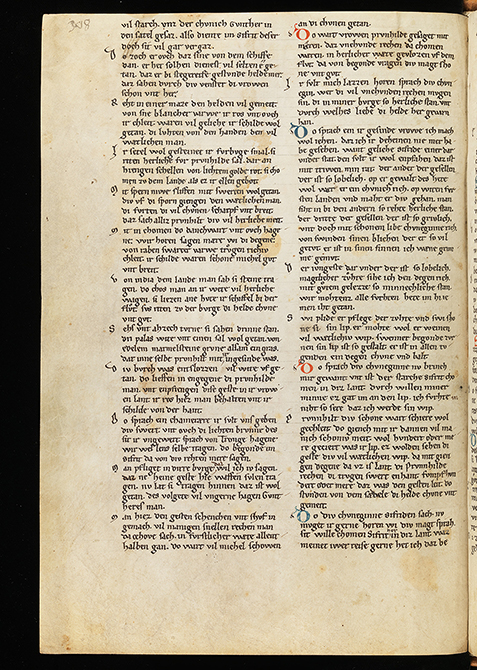 vil starch. vnz der chvnich Gvnther in
den satel gesaz. also diente im Sifrit des er
doch sit vil gar vergaz.
Do zoch er ovch daz sine von dem schiffe
dan. er het solhen dienest vil selten e ge
tan. daz er bi stegereiffe gestvnde helde mer.
daz sahen dvrch div venster di vrowen
schon vnt her.
Reht in einer maze den helden vil gemeit.
von sne blancher varwe ir ros vnt ovch
ir chleit waren vil geliche ir schilde wol
getan. di lvhten von den handen den vil
wætlichen man.
Ir setel wol gesteinet ir fvrbvge smal. si
riten herliche fvr prvnhilde sal. dar an
hiengen schellen von liehtem golde rot. si cho
men zv dem lande als ez ir ellen gebot.
Mit spern niwe sliffen mit swerten wol getan.
div vf di sporn giengen den wætlichen man.
di fvrten di vil chvnen scharpf vnt breit.
daz sach allez prvnhilt div vil herliche meit.
Mit im chomen do Danchwart vnt ovch Hage
ne. wir horen sagen mære wi di degene
von raben swarzer varwe trvgen richiv
chleit. ir schilde waren schone michel gvt
vnt breit.
Von India dem lande man sah si steine tra
gen. do chos man an ir wæte vil herliche
wagen. si liezen ane hvte ir schiffel bi der
flvt. svs riten zv der bvrge di helde chvne
vnt gvt.
Sehs vnt ahzech tvrne si sahen drinne stan.
dri palas wite vnt einen sal wol getan. von
edelem marmelsteine grvne alsam ein gras.
dar inne selbe prvnhilt mit ir ingesinde was.
Div bvrch was entslozzen vil wite vf ge
tan. do lieffen in engegene di prvnhilde
man. vnt enpfiengen dise geste in ir vrow
en lant. ir ros hiez man behalten vnt ir
schilde von der hant.
Do sprach ein chameræere ir svlt vns geben
div swert. vnt ovch di liehten brvnne des
sit ir vngewert sprach von Tronege Hagene
wir wellens selbe tragen. do begonde im
Sifrit da von div rehten mære sagen.
Man pfliget in dirre bvrge wil ich iv sagen.
daz ne heine geste hie waffen svlen tra
gen. nv lat si tragen hinnen daz ist wol
getan. des volgete vil vngerne Hagen Gvnt
heres man.
Man hiez den gesten schenchen vnt schvf in
gemach. vil manigen snellen rechen man
da ze hove sach. in fvrstlicher wæte allent
halben gan. do wart vil michel schowen
an di chvnen getan.
Do wart vrowen prvnhilde gesaget mit
mæren. daz vnchvnde rechen da chomen
wæren. in herlicher wæte gevlozzen vf dem
flvt. da von begonde vragen div magt scho
ne vnt gvt.
Ir svlt mich lazzen horen sprach div chvn
egin. wer di vil vnchvnden rechen mvgen
sin. di in miner bvrge so herliche stan. vnt
dvrch welhes liebe di helde her gevarn
han.
Do sprach ein ir gesinde vrowe ich mach
wol iehen. daz ich ir deheinen nie mer ha
be gesehen. wan geliche Sifride einer dar
vnder stat. den svlt ir wol enpfahen daz ist
mit triwen min rat. der ander der gesellen
der ist so lobelich. op er gewalt des hete
wol wær er ein chvnich rich. op witen fvr
sten landen vnd mahte er div gehan. man
siht in bi den andern so rehte herliche stan.
Der dritte der gesellen der ist so grivlich.
vnt doch mit schonem libe chvneginne rich.
von swinden sinen blichen der er so vil
getvt. er ist in sinen sinnen ich wæne grim
me gemvt.
Der ivngeste dar vnder der ist so lobelich.
magtlicher zvhte sihe ich den degen rich.
mit gvtem gelæzze so minnechliche stan.
wir mohtenz alle fvrhten hete im hi ie
men iht getan.
Swi blide er pflege der zvhte vnd swi scho
ne si sin lip. er mohte wol er weinen
vil wætlichiv wip. swenner begonde zvr
nen sin lip ist so gestalt. er ist in allen tv
genden ein degen chvne vnd balt.
Do sprach div chvneginne nv brinch
mir gewant. vnt ist der starche Sifrit cho
men in diz lant. dvrch willen miner
minne ez gat im an den lip. ich fvrhte in
niht so sere daz ich werde sin wip.
Prvnhilt div schone wart schire wol
gechleit. do giench mit ir dannen vil ma
nich schoniv meit. wol hvndert oder me
re gezieret was ir lip. ez wolden sehen di
geste div vil wætlichen wip. da mit gien
gen degene da vz Islant. di prvnhilde
rechen di trvgen swert enhant. fvmfhvn
dert oder mere daz was den gesten leit. do
stvnden von dem sedele di helde chvne vnt
gemeit.
Do div chvneginne Sifriden sach nv
mvget ir gerne horen wi div magt sprah.
sit willechomen Sifrit in diz lant. waz
meinet iwer reise gerne het ich daz be